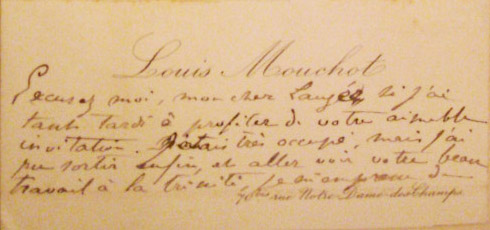 Louis Mouchot
Excusez moi, mon cher Laugée, si j'ai
tant tardé à profiter de votre aimable
invitation. J'étais très occupé, mais j'ai
pu sortir enfin, et aller voir votre beau
travail à la trinité. Je m'empresse d
70 bis rue Notre-Dame-des-Champs